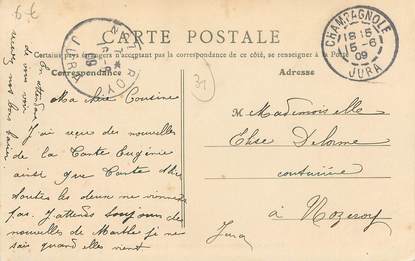 6 €
CARTE POSTALE
Certains pays étrangers n'acceptant pas la correspondance de ce côté, se renseigner à la Poste
Correspondance
Adresse
CHAMPAGNOLE
18 15
15 -6
09
JURA
NOZEROY
JURA
09
31
En attendant
de vous voir
recevez nos bons baisers
Ma chère Cousine
J'ai reçu des nouvelles
de la Tante Eugénie
ainsi que Tante
toutes les deux ne viennent
pas. J'attends toujours des
nouvelles de Marthe je ne
sais quand elles vient
M Mademoiselle
Elise Delorme
couturière
à Nozeroy
Jura